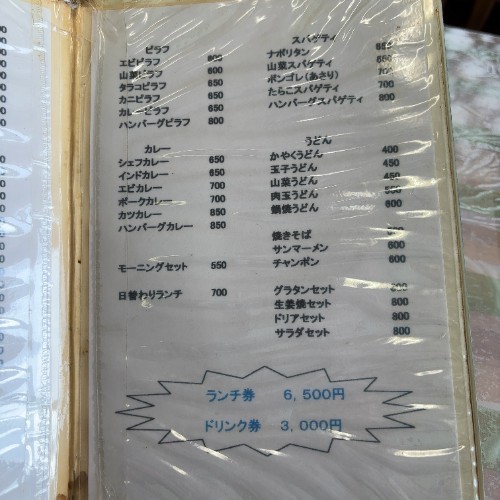 ピラフ
エビピラフ 600
山菜ピラフ 600
タラコピラフ 650
カニピラフ 650
カレーピラフ 650
ハンバーグピラフ 800
カレー
シェフカレー 650
インドカレー 650
エビカレー 700
ポークカレー 700
カツカレー 850
ハンバーグカレー 850
モーニングセット 550
日替わりランチ 700
スパゲティ
ナポリタン 650
山菜スパゲティ 650
ボンゴレ(あさり) 700
たらこスパゲティ 700
ハンバーグスパゲティ 800
うどん
かやくうどん 400
玉子うどん 450
山菜うどん 450
肉玉うどん
鍋焼うどん 600
焼きそば
サンマーメン 600
チャンポン 600
グラタンセット 800
生姜焼セット 800
ドリアセット 800
サラダセット 800
ランチ券 6,500円
ドリンク券 3,000円